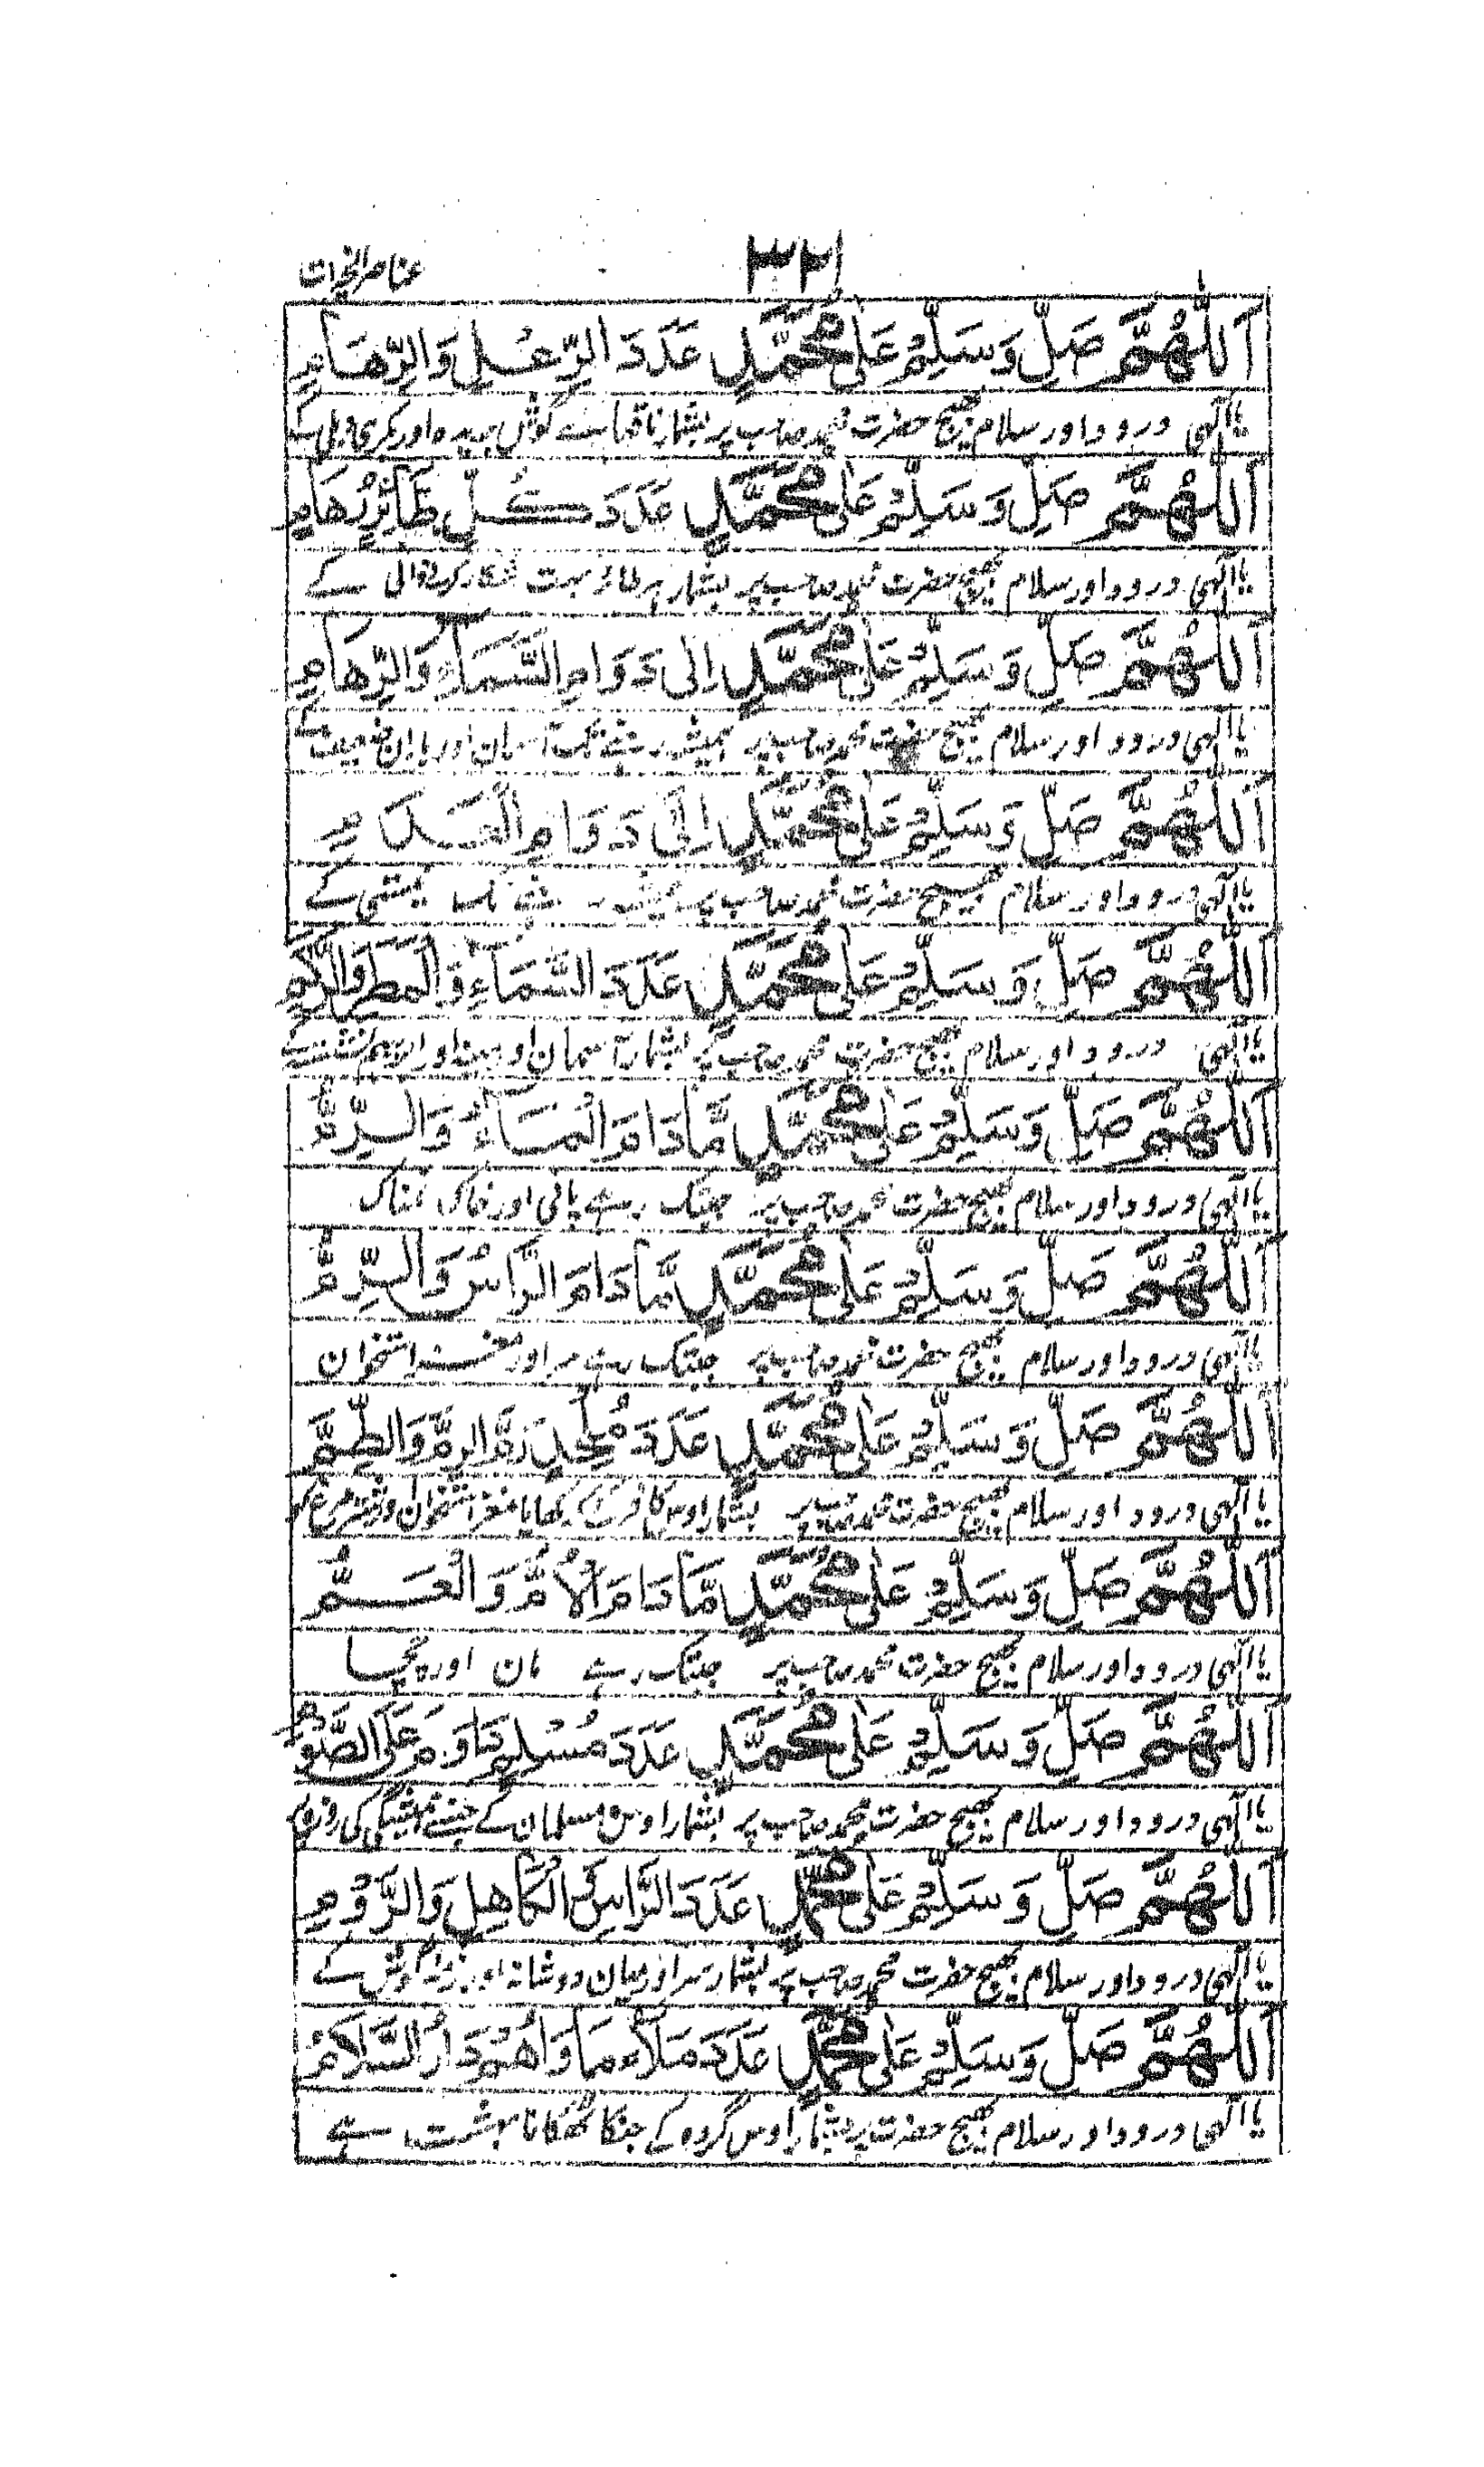 عناصر الخیرات
۳۲۱
اَللّٰهُمَّ صَلِّ وَسَلِّمْ عَلٰى مُحَمَّدٍ عَدَدَ الرِّعْلِ وَالرِّهَامِ
یا الٰہی درود اور سلام بھیج حضرت محمد صاحب پر بشمار ناقہاے گوش بریدہ اور بکری دبلی کے
اَللّٰهُمَّ صَلِّ وَسَلِّمْ عَلٰى مُحَمَّدٍ عَدَدَ كُلِّ طَائِرٍ رُهَامٍ
یا الٰہی درود اور سلام بھیج حضرت محمد صاحب پر بشمار ہر طائر بہت شکار کرنےوالی کے
اَللّٰهُمَّ صَلِّ وَسَلِّمْ عَلٰى مُحَمَّدٍ اِلٰى دَوَامِ السَّمَاءِ وَالرِّهَامِ
یا الٰہی درود اور سلام بھیج حضرت محمد صاحب پر ہمیش رہنے تک آسمان اور باران ضعیف کے
اَللّٰهُمَّ صَلِّ وَسَلِّمْ عَلٰى مُحَمَّدٍ اِلٰى دَوَامِ الْعَدَامِ
یا الٰہی درود اور سلام بھیج حضرت محمد صاحب پر ہمیش رہنے تک نیستی کے
اَللّٰهُمَّ صَلِّ وَسَلِّمْ عَلٰى مُحَمَّدٍ عَدَدَ السَّمَاءِ وَالْمَطَرِ وَالرَّكَمِ
یا الٰہی درود اور سلام بھیج حضرت محمد صاحب پر بشمار آسمان اور مینہ اور ابر بہم نشستہ کے
اَللّٰهُمَّ صَلِّ وَسَلِّمْ عَلٰى مُحَمَّدٍ مَّا دَامَ الْمَاءُ وَالرِّمُّ
یا الٰہی درود اور سلام بھیج حضرت محمد صاحب پر جبتک رہے پانی اور خاک نمناک
اَللّٰهُمَّ صَلِّ وَسَلِّمْ عَلٰى مُحَمَّدٍ مَّا دَامَ الرَّاسُ وَالرِّمُّ
یا الٰہی درود اور سلام بھیج حضرت محمد صاحب پر جبتک رہے سر اور مغز استخوان
اَللّٰهُمَّ صَلِّ وَسَلِّمْ عَلٰى مُحَمَّدٍ عَدَدَ مُلْحِدٍ رَمَّ الرِمَّ وَالطِّمَّ
یا الٰہی درود اور سلام بھیج حضرت محمد صاحب پر بشمار اوس کافر کے کھایا مغز استخوان و شتر مرغ کو
اَللّٰهُمَّ صَلِّ وَسَلِّمْ عَلٰى مُحَمَّدٍ مَّا دَامَ الْاُمُّ وَالْعَمُّ
یا الٰہی درود اور سلام بھیج حضرت محمد صاحب پر جبتک رہے مان اور چچا
اَللّٰهُمَّ صَلِّ وَسَلِّمْ عَلٰى مُحَمَّدٍ عَدَدَ مُسْلِمٍ دَاوَمَ عَلَى الصَّوْمِ
یا الٰہی درود اور سلام بھیج حضرت محمد صاحب پر بشمار اوس مسلمان کے جسنے ہمیشگی کی روزہ پر
اَللّٰهُمَّ صَلِّ وَسَلِّمْ عَلٰى مُحَمَّدٍ عَدَدَ الرَّاسِ الْكَاهِلِ وَالرَّوْمِ
یا الٰہی درود اور سلام بھیج حضرت محمد صاحب پر بشمار سر اور میان دو شانہ اور نرمہ گوش کے
اَللّٰهُمَّ صَلِّ وَسَلِّمْ عَلٰى مُحَمَّدٍ عَدَدَ مَلَاءٍ مَاوَاهُمْ دَارُ السَّلَامِ
یا الٰہی درود اور سلام بھیج حضرت پر بشمار اوس گروہ کے جنکا ٹھکانا بہشت ہے